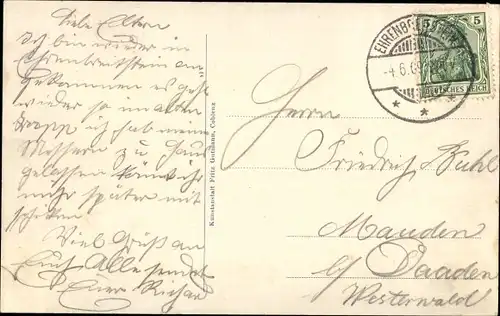 Liebe Eltern
Ich bin wieder in
Ehrenbreitstein an
gekommen es geht
wieder so im alten
ich hab meine
Messern zu Haus
gelassen könnt ihr
mehr später mit
schicken
Viel Grüß an
Euch Alle sendet
Euer Richard
Kunstanstalt Fritz Gutmann, Coblenz
EHRENBREITSTEIN
4.6.
5
5
DEUTSCHES REICH
Herrn
Friedrich Buhl
Mauden
b/ Daaden
Westerwald